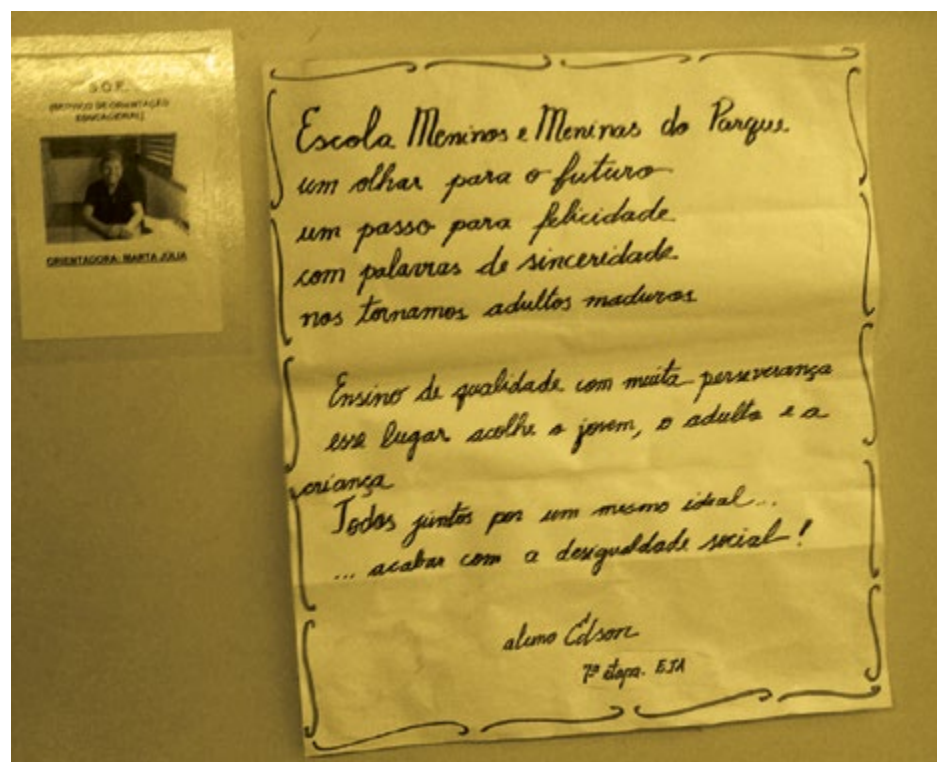 S.O.E.
(SERVIÇO DE ORIENTAÇÃO
EDUCACIONAL)
ORIENTADORA: MARTA JÚLIA
Escola Meninos e Meninas do Parque
um olhar para o futuro
um passo para felicidade
com palavras de sinceridade
nos tornamos adultos maduros
Ensino de qualidade com muita perseverança
esse lugar acolhe o jovem, o adulto e a
criança
Todos juntos por um mesmo ideal...
... acabar com a desigualdade social!
aluno Édson
7ª etapa. EJA